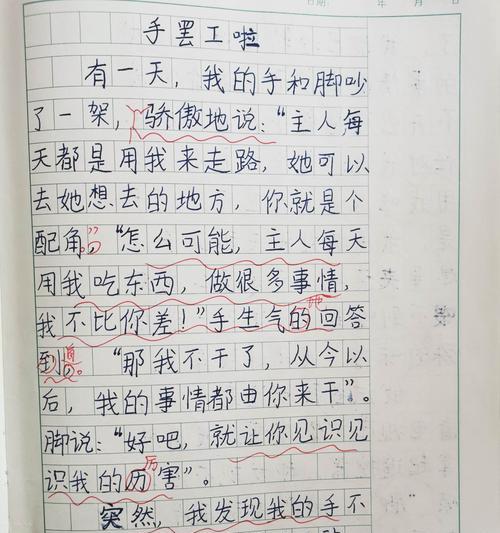 日期: 年 月 日
手罢工啦
有一天,我的手和脚吵
了一架,骄傲地说:“主人每
天都是用我来走路,她可以
去她想去的地方,你就是个
配角。”“怎么可能,主人每天
用我吃东西,做很多事情,
地
我不比你差!”手生气的回答
到道:“那我不干了,从今以
后,我的事情都由你来干”。
脚说:“好吧,就让你见识见
厉
识我的历害”。
突然,我发现我的手不